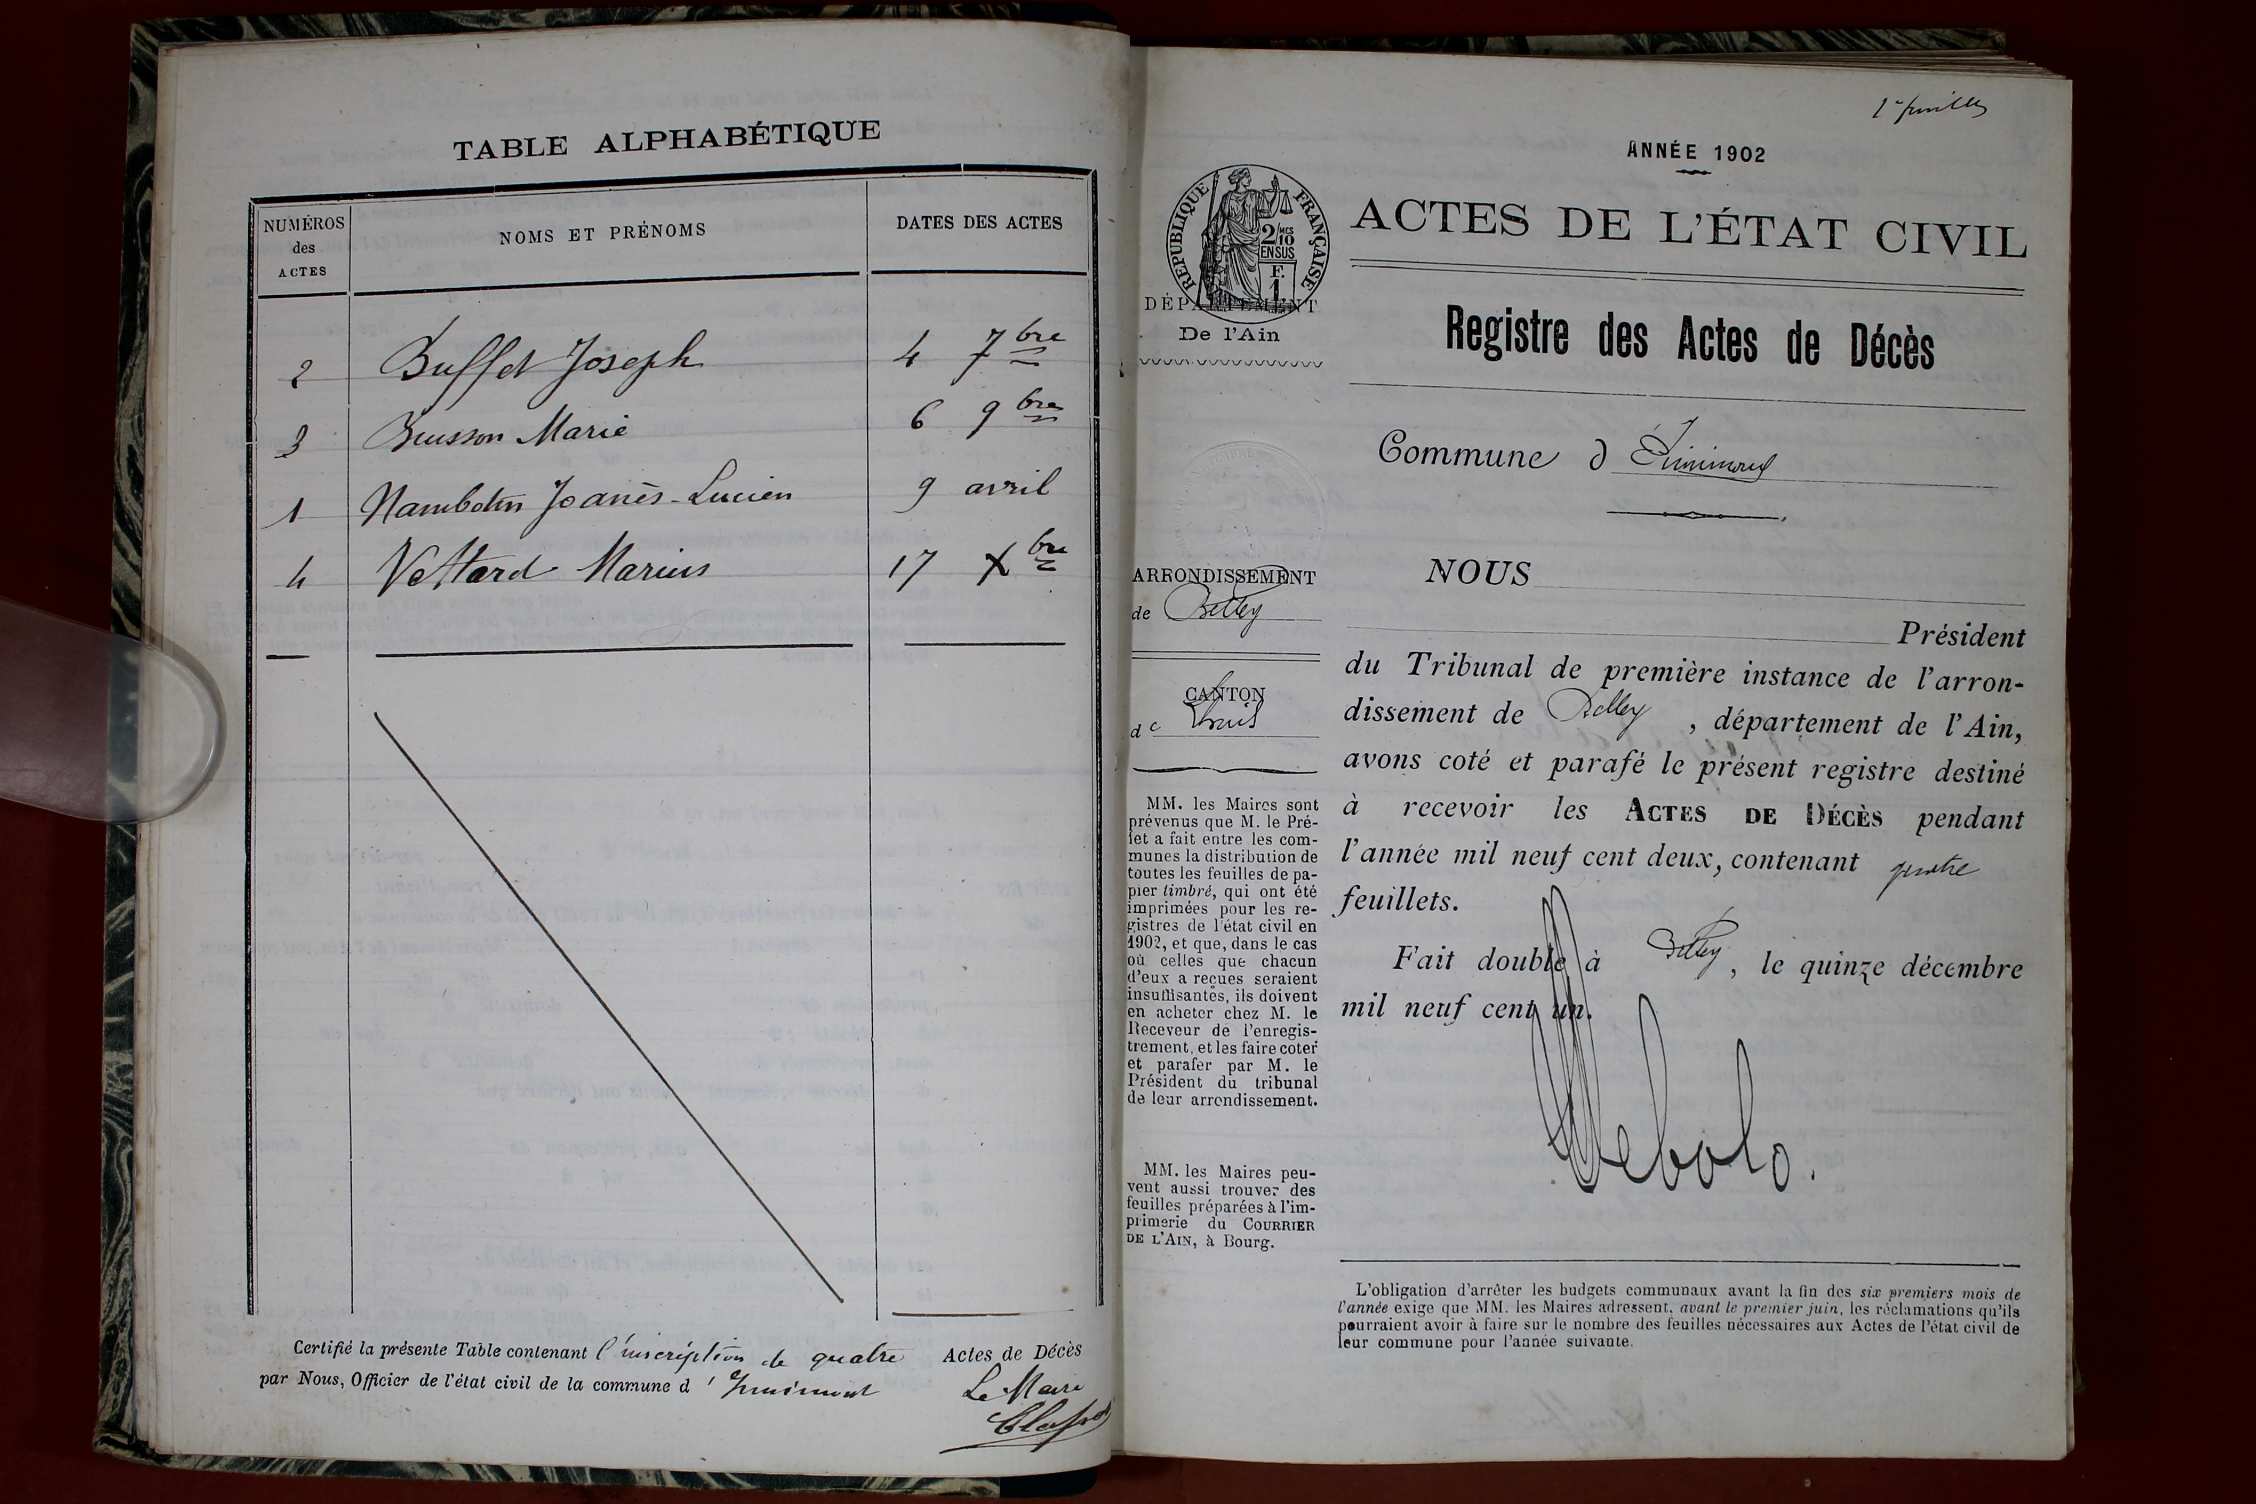 TABLE ALPHABÉTIQUE
NUMÉROS
des
ACTES
NOMS ET PRÉNOMS
DATES DES ACTES
2 Buffet Joseph 4 7bre
3 Buisson Marie 6 9bre
1 Nambotin Joanès-Lucien 9 avril
4 Vettard Marius 17 Xbre
Certifié la présente Table contenant l'inscription de quatre Actes de Décès
par Nous, Officier de l'état civil de la commune d'Izieu
Le Maire
ANNÉE 1902
RÉPUBLIQUE FRANÇAISE
2/10 MES
EN SUS
F.
1
DÉPARTEMENT
De l'Ain
ARRONDISSEMENT
de Belley
CANTON
de
MM. les Maires sont
prévenus que M. le Pré-
fet a fait entre les com-
munes la distribution de
toutes les feuilles de pa-
pier timbré, qui ont été
imprimées pour les re-
gistres de l'état civil en
1902, et que, dans le cas
où celles que chacun
d'eux a reçues seraient
insuffisantes, ils doivent
en acheter chez M. le
Receveur de l'enregis-
trement, et les faire coter
et parafer par M. le
Président du tribunal
de leur arrondissement.
MM. les Maires peu-
vent aussi trouver des
feuilles préparées à l'im-
primerie du COURRIER
DE L'AIN, à Bourg.
ACTES DE L'ÉTAT CIVIL
Registre des Actes de Décès
Commune d
NOUS
Président
du Tribunal de première instance de l'arron-
dissement de Belley, département de l'Ain,
avons coté et parafé le présent registre destiné
à recevoir les ACTES DE DÉCÈS pendant
l'année mil neuf cent deux, contenant quatre
feuillets.
Fait double à Belley, le quinze décembre
mil neuf cent un.
L'obligation d'arrêter les budgets communaux avant la fin des six premiers mois de
l'année exige que MM. les Maires adressent, avant le premier juin, les réclamations qu'ils
pourraient avoir à faire sur le nombre des feuilles nécessaires aux Actes de l'état civil de
leur commune pour l'année suivante.